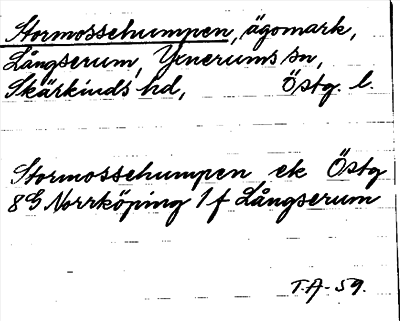 Stormossehumpen, ägomark,
Långserum, Yxnerums sn,
Skärkinds hd, Östg. l.
Stormossehumpen ek Östg
8G Norrköping 1 f Långserum
T.A-59.